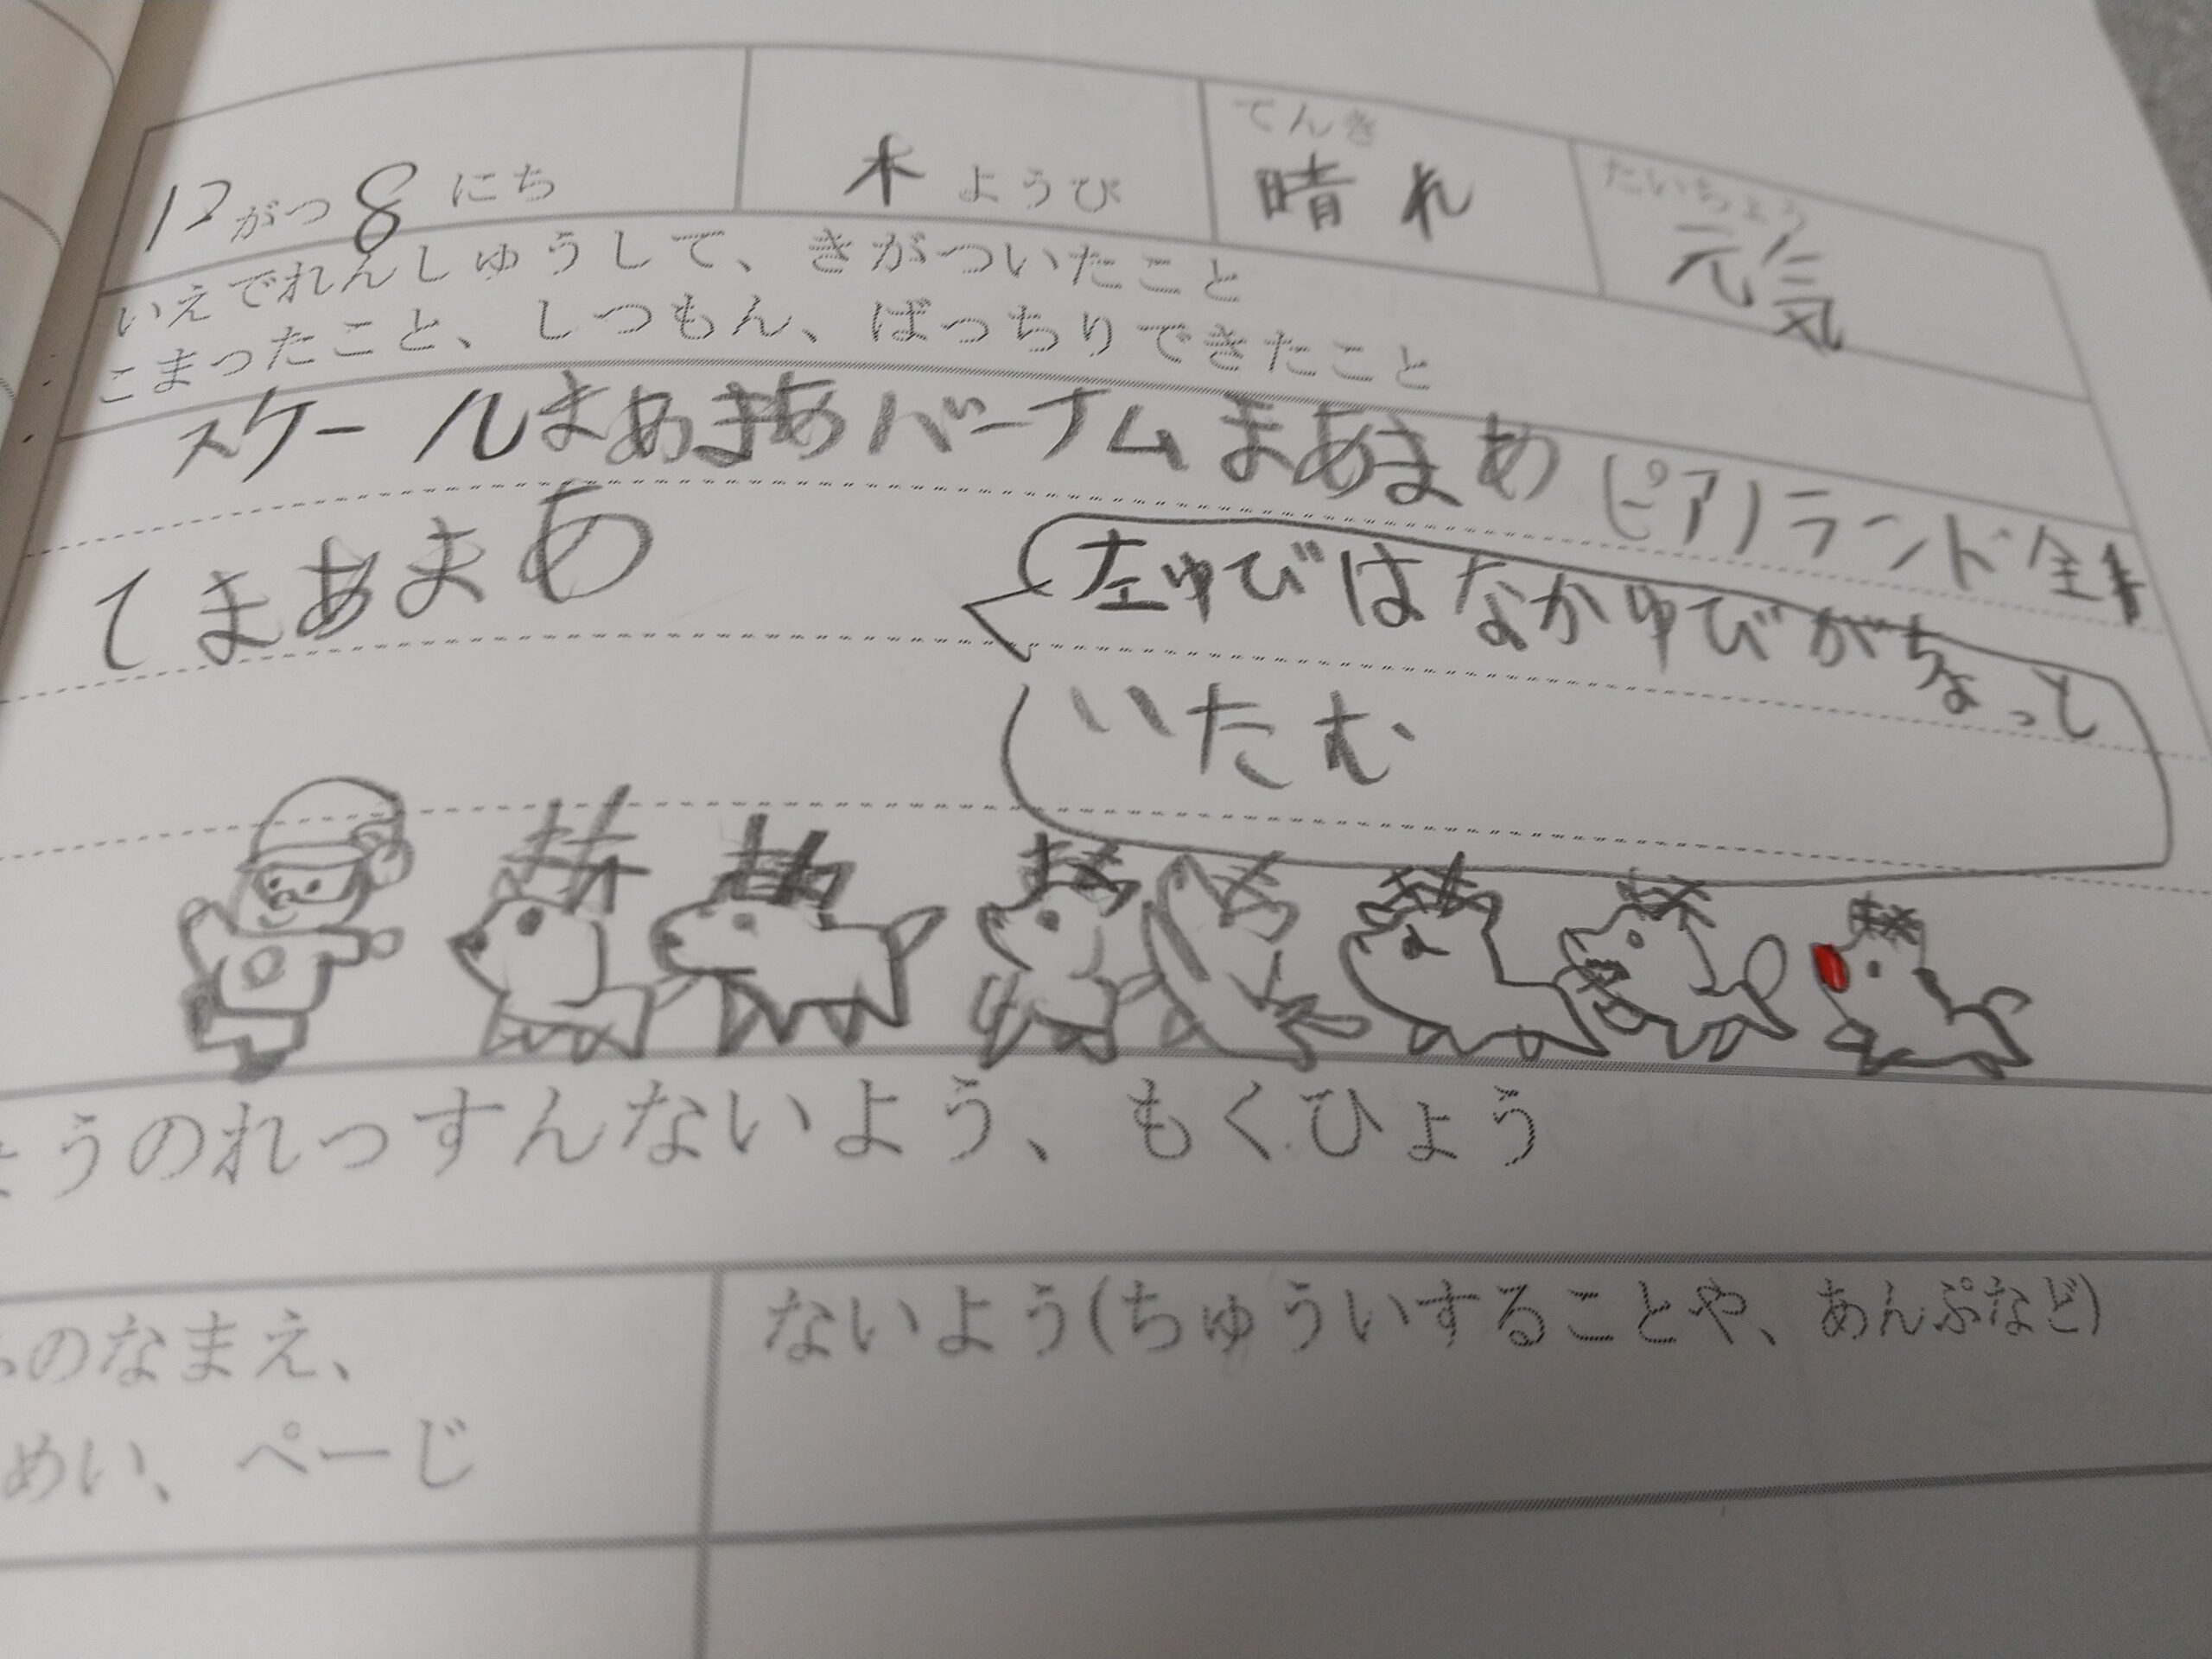 てんき
たいちょう
12がつ8にち 木ようび 晴れ 元気
いえでれんしゅうして、きがついたこと
こまったこと、しつもん、ばっちりできたこと
スケールまあまあバーナムまあまあピアノランド全
てまあまあ
左ゆびはなかゆびがちょっと
いたむ
うのれっすんないよう、もくひょう
のなまえ、
めい、ぺーじ
ないよう(ちゅういすることや、あんぷなど)